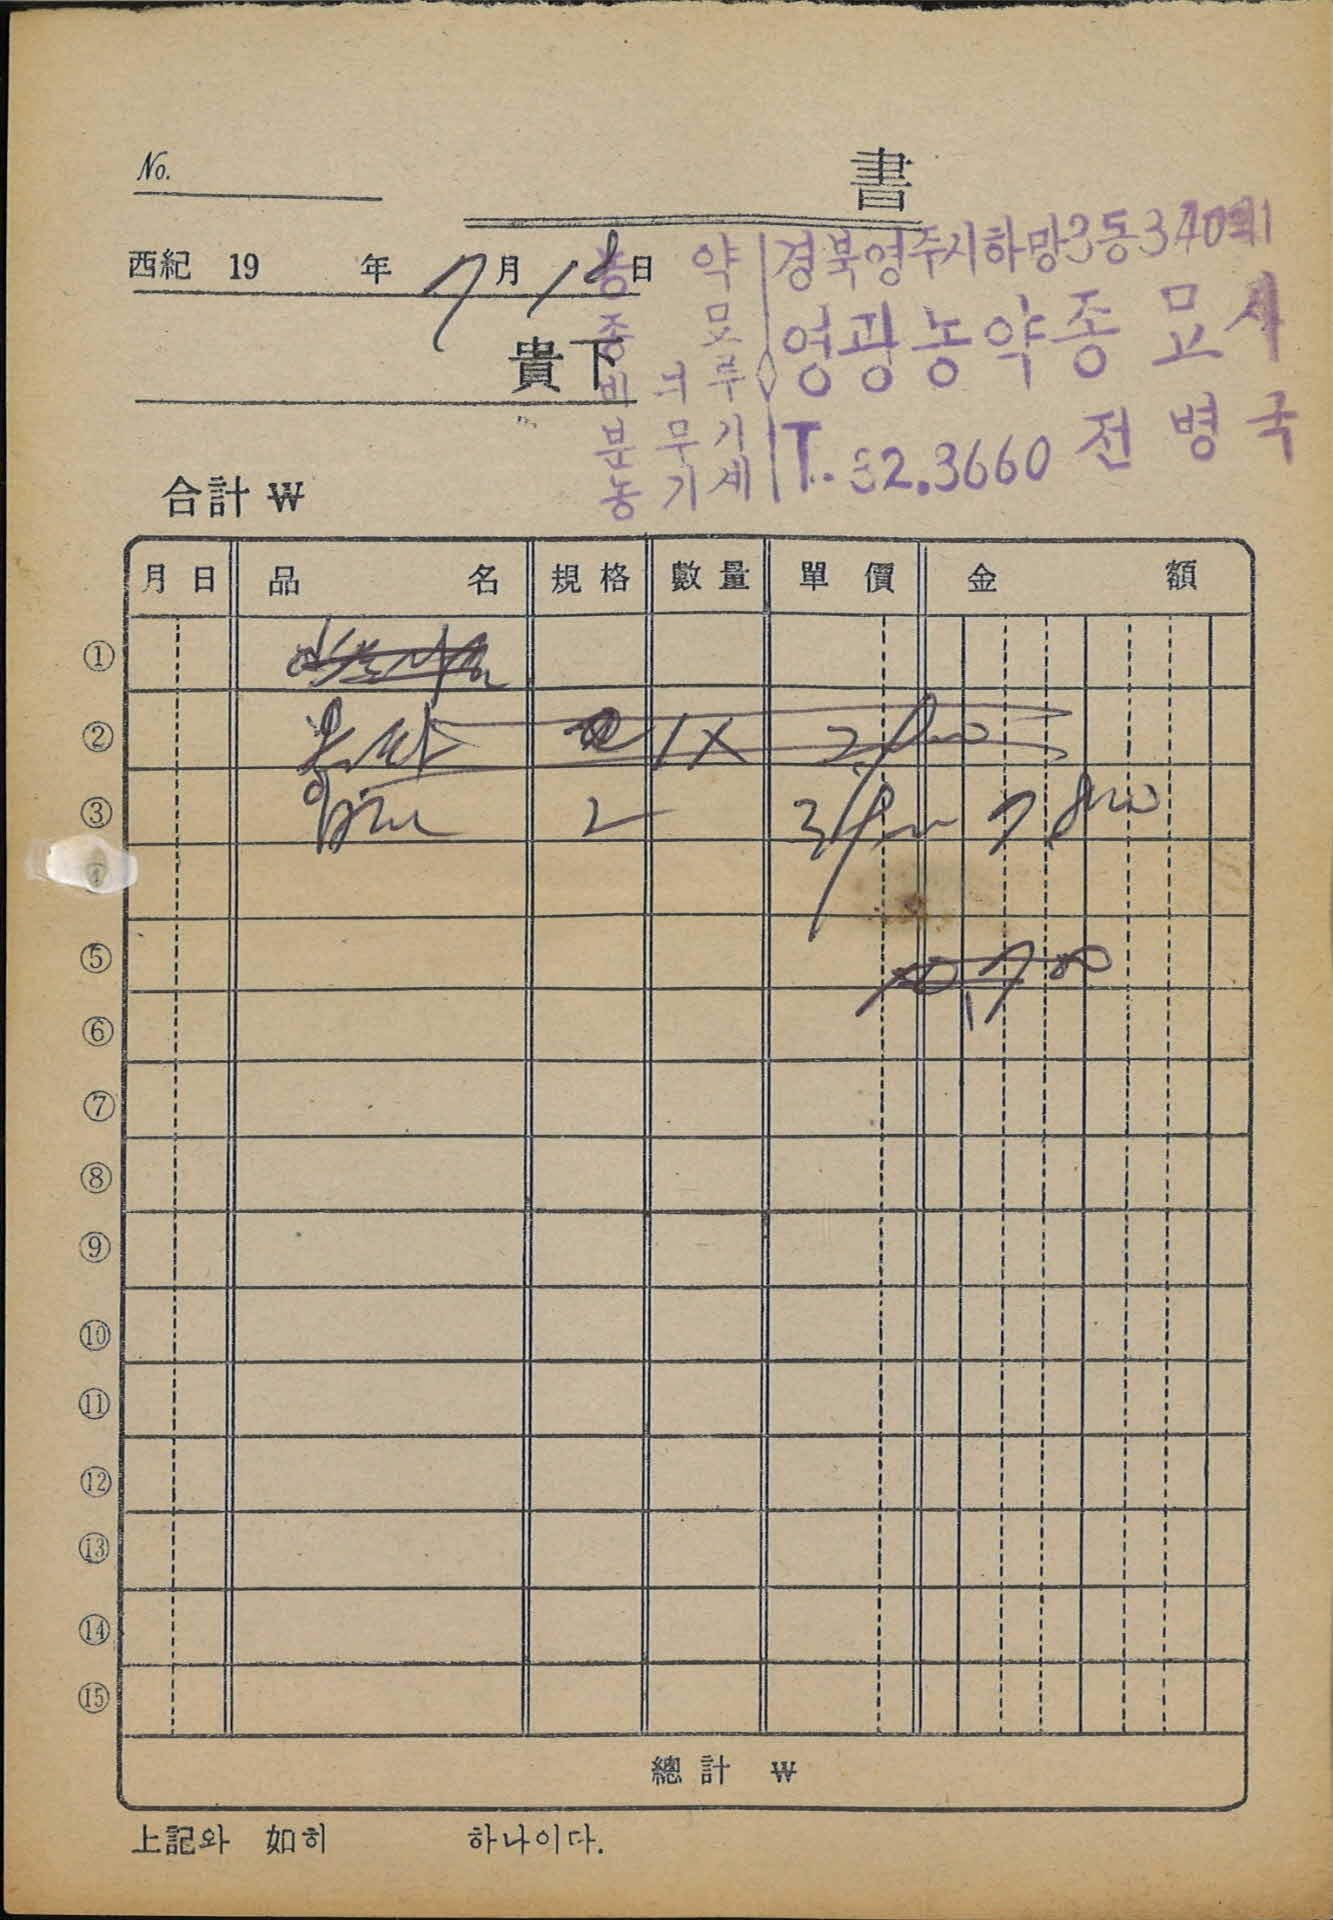 No.
書
西紀 19 年 7月 18日
貴下
농약
종묘
비니루
분무기
농기세
경북영주시하망3동340의1
영광농약종묘사
T. 32.3660 전병국
合計 ₩
月日 品名 規格 數量 單價 金額
①
② 1X
③ 2 7,800
④
⑤
⑥
⑦
⑧
⑨
⑩
⑪
⑫
⑬
⑭
⑮
總計 ₩
上記와 如히 하나이다.